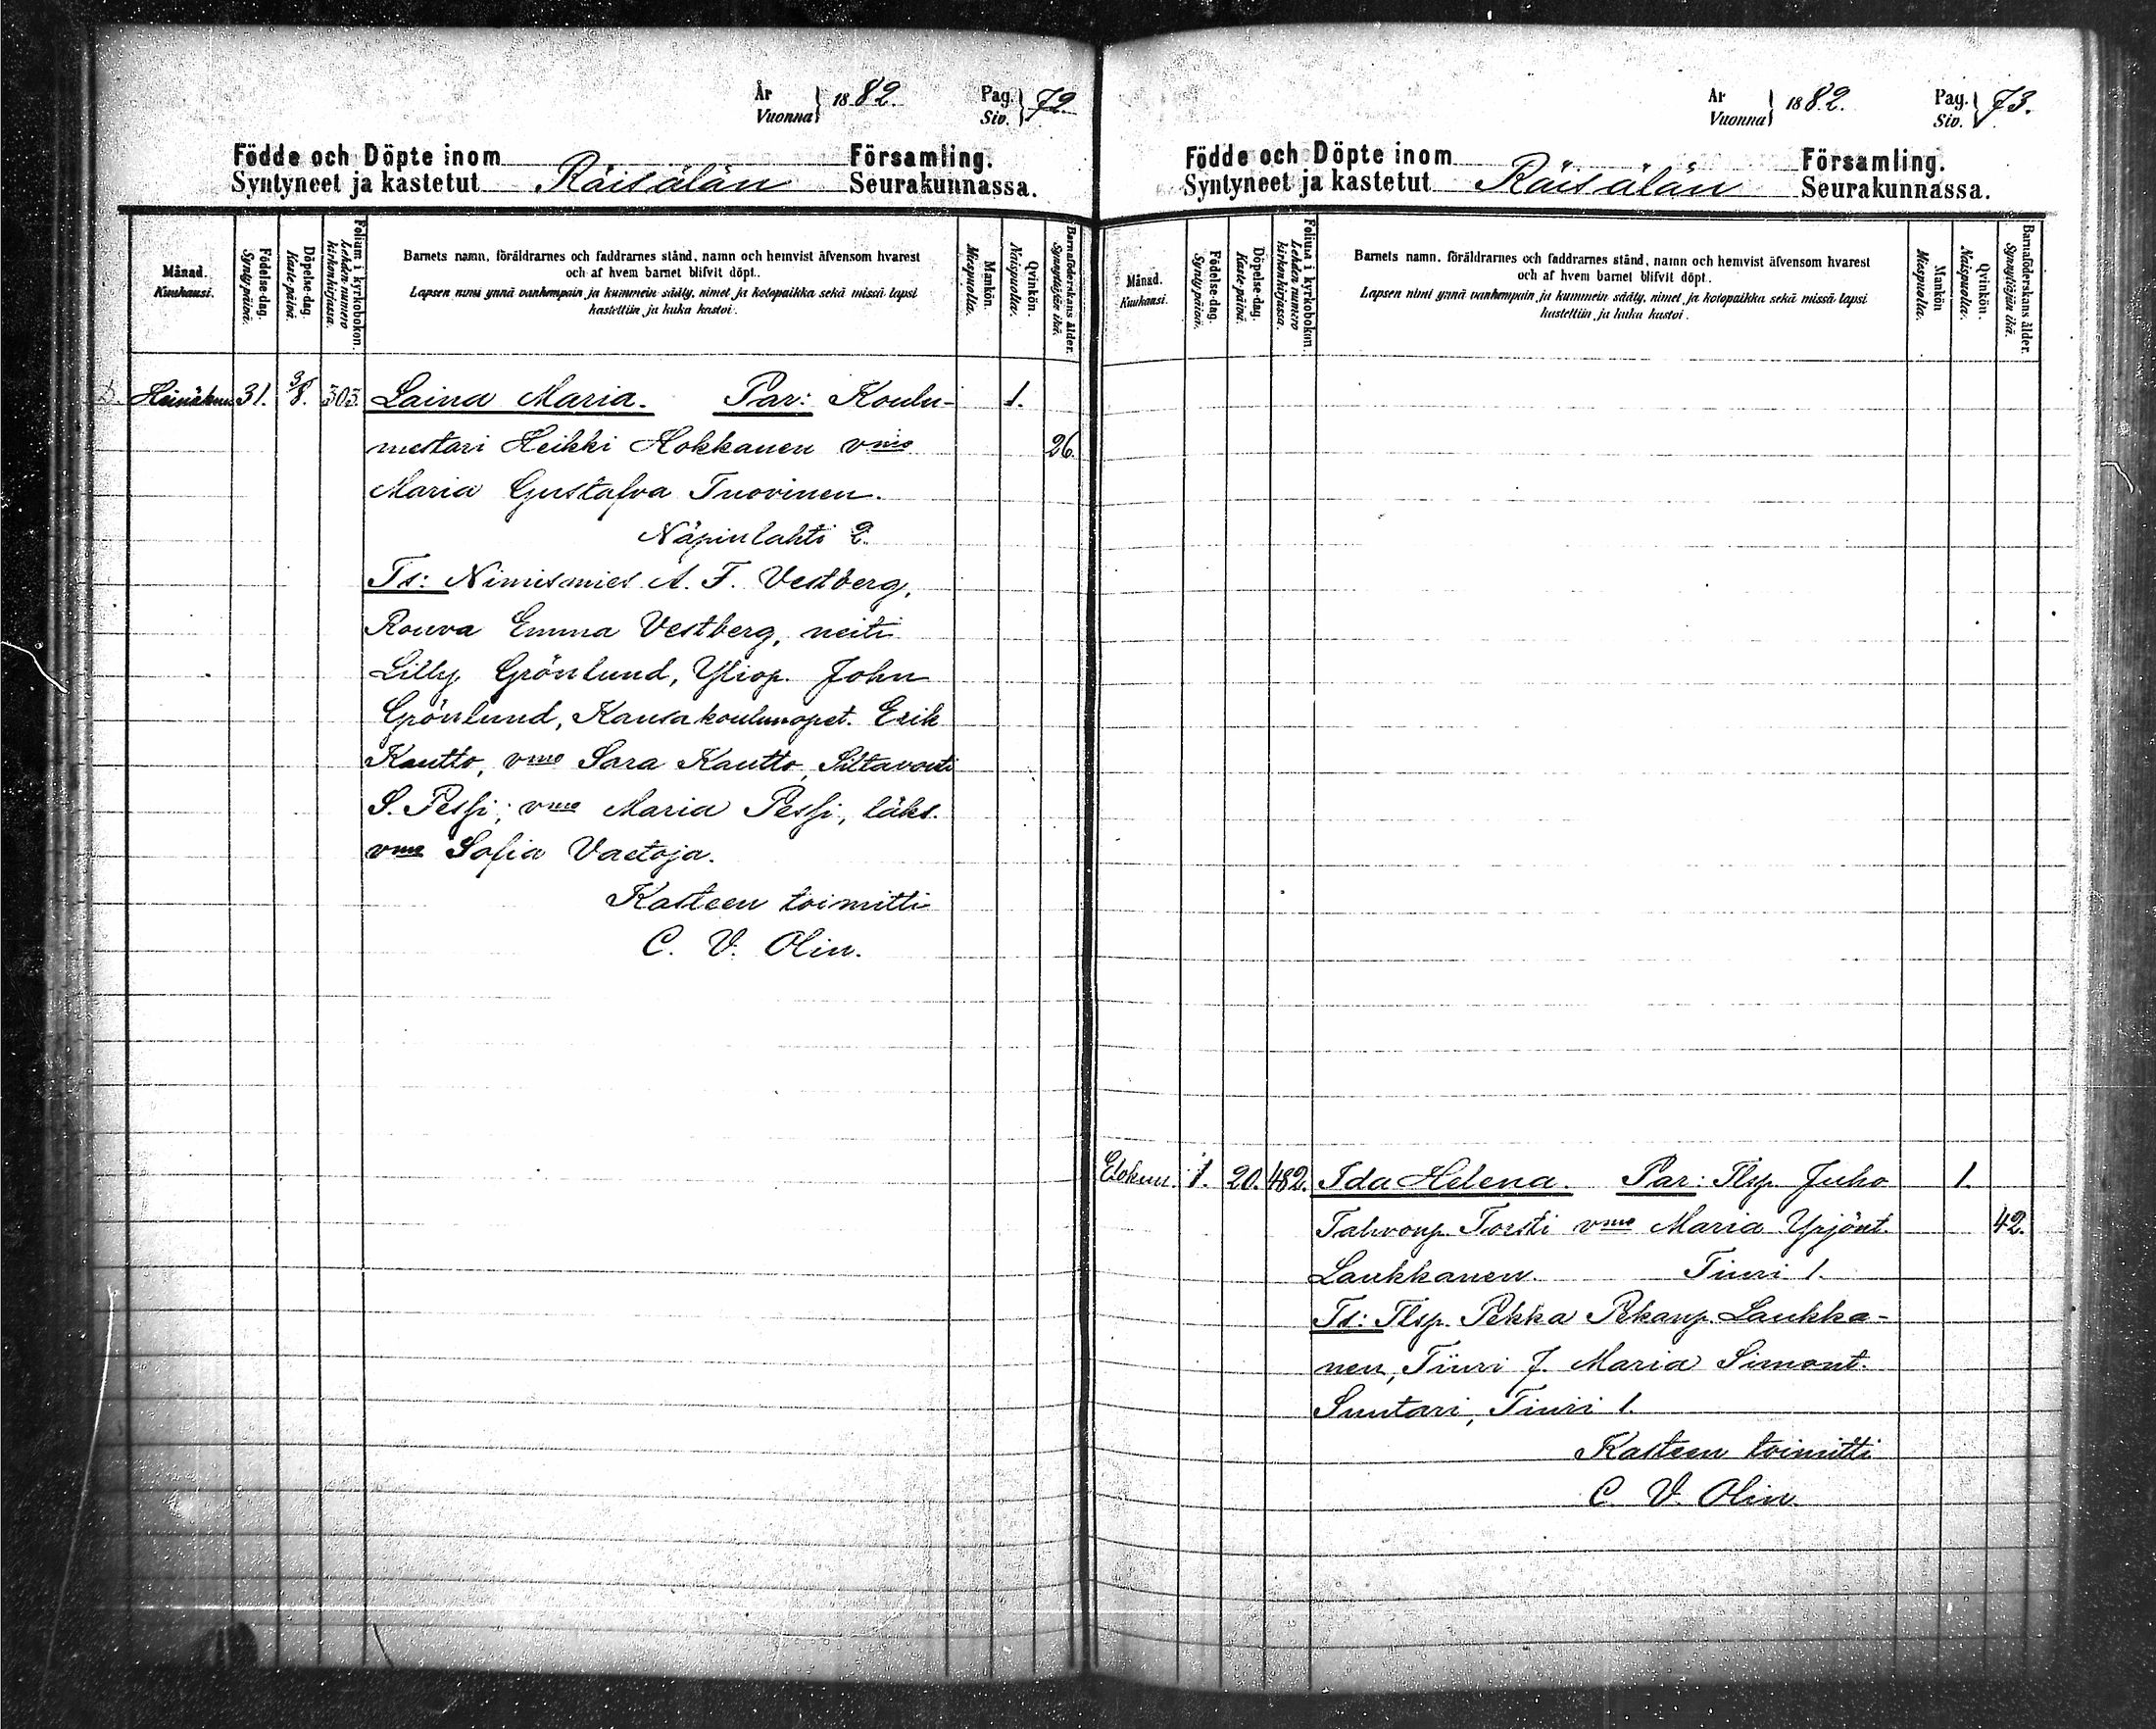 År
Vuonna } 1882.
Pag.
Siv. } 72
Födde och Döpte inom Församling.
Syntyneet ja kastetut Räisälän Seurakunnassa.
Månad.
Kuukausi.
Födelse-dag.
Synty-päivä.
Döpelse-dag.
Kaste-päivä.
Folium i kyrkobokon.
Lehden numero
kirkonkirjassa.
Barnets namn, föräldrarnes och faddrarnes stånd, namn och hemvist äfvensom hvarest
och af hvem barnet blifvit döpt.
Lapsen nimi ynnä vanhempain ja kummein sääty, nimet ja kotopaikka sekä missä lapsi
kastettiin ja kuka kastoi.
Mankön.
Miespuolia.
Qvinkön.
Naispuolia.
Barnaföderskans ålder.
Synnyttäjän ikä.
Heinäkuu 31. 3/8. 303. Laina Maria. Par: Koulu- 1.
mestari Heikki Hokkanen vmo 26.
Maria Gustafva Tuovinen.
Näpinlahti 2
Ts: Nimismies A. F. Vestberg,
Rouva Emma Vestberg, neiti
Lilly Grönlund, Yliop. John
Grönlund, Kansakoulunopet. Erik
Kautto, vmo Sara Kautto, Siltavouti
S. Pessi, vmo Maria Pessi, läks.
vmo Sofia Vaetoja.
Kasteen toimitti
C. V. Olin.
År
Vuonna } 1882.
Pag.
Siv. } 73.
Födde och Döpte inom Församling.
Syntyneet ja kastetut Räisälän Seurakunnassa.
Månad.
Kuukausi.
Födelse-dag.
Synty-päivä.
Döpelse-dag.
Kaste-päivä.
Folium i kyrkobokon.
Lehden numero
kirkonkirjassa.
Barnets namn, föräldrarnes och faddrarnes stånd, namn och hemvist äfvensom hvarest
och af hvem barnet blifvit döpt.
Lapsen nimi ynnä vanhempain ja kummein sääty, nimet ja kotopaikka sekä missä lapsi
kastettiin ja kuka kastoi.
Mankön
Miespuolia.
Qvinkön.
Naispuolia.
Barnaföderskans ålder.
Synnyttäjän ikä.
Elokuu. 1. 20. 482. Ida Helena. Par: Tlsp. Juho 1.
Tahvonp. Torsti vmo Maria Yrjönt. 42.
Laukkanen. Tiuri 1.
Ts: Tlsp. Pekka Pekanp. Laukka-
nen, Tiuri 7. Maria Simont.
Suntari, Tiuri 1.
Kasteen toimitti
C. V. Olin.